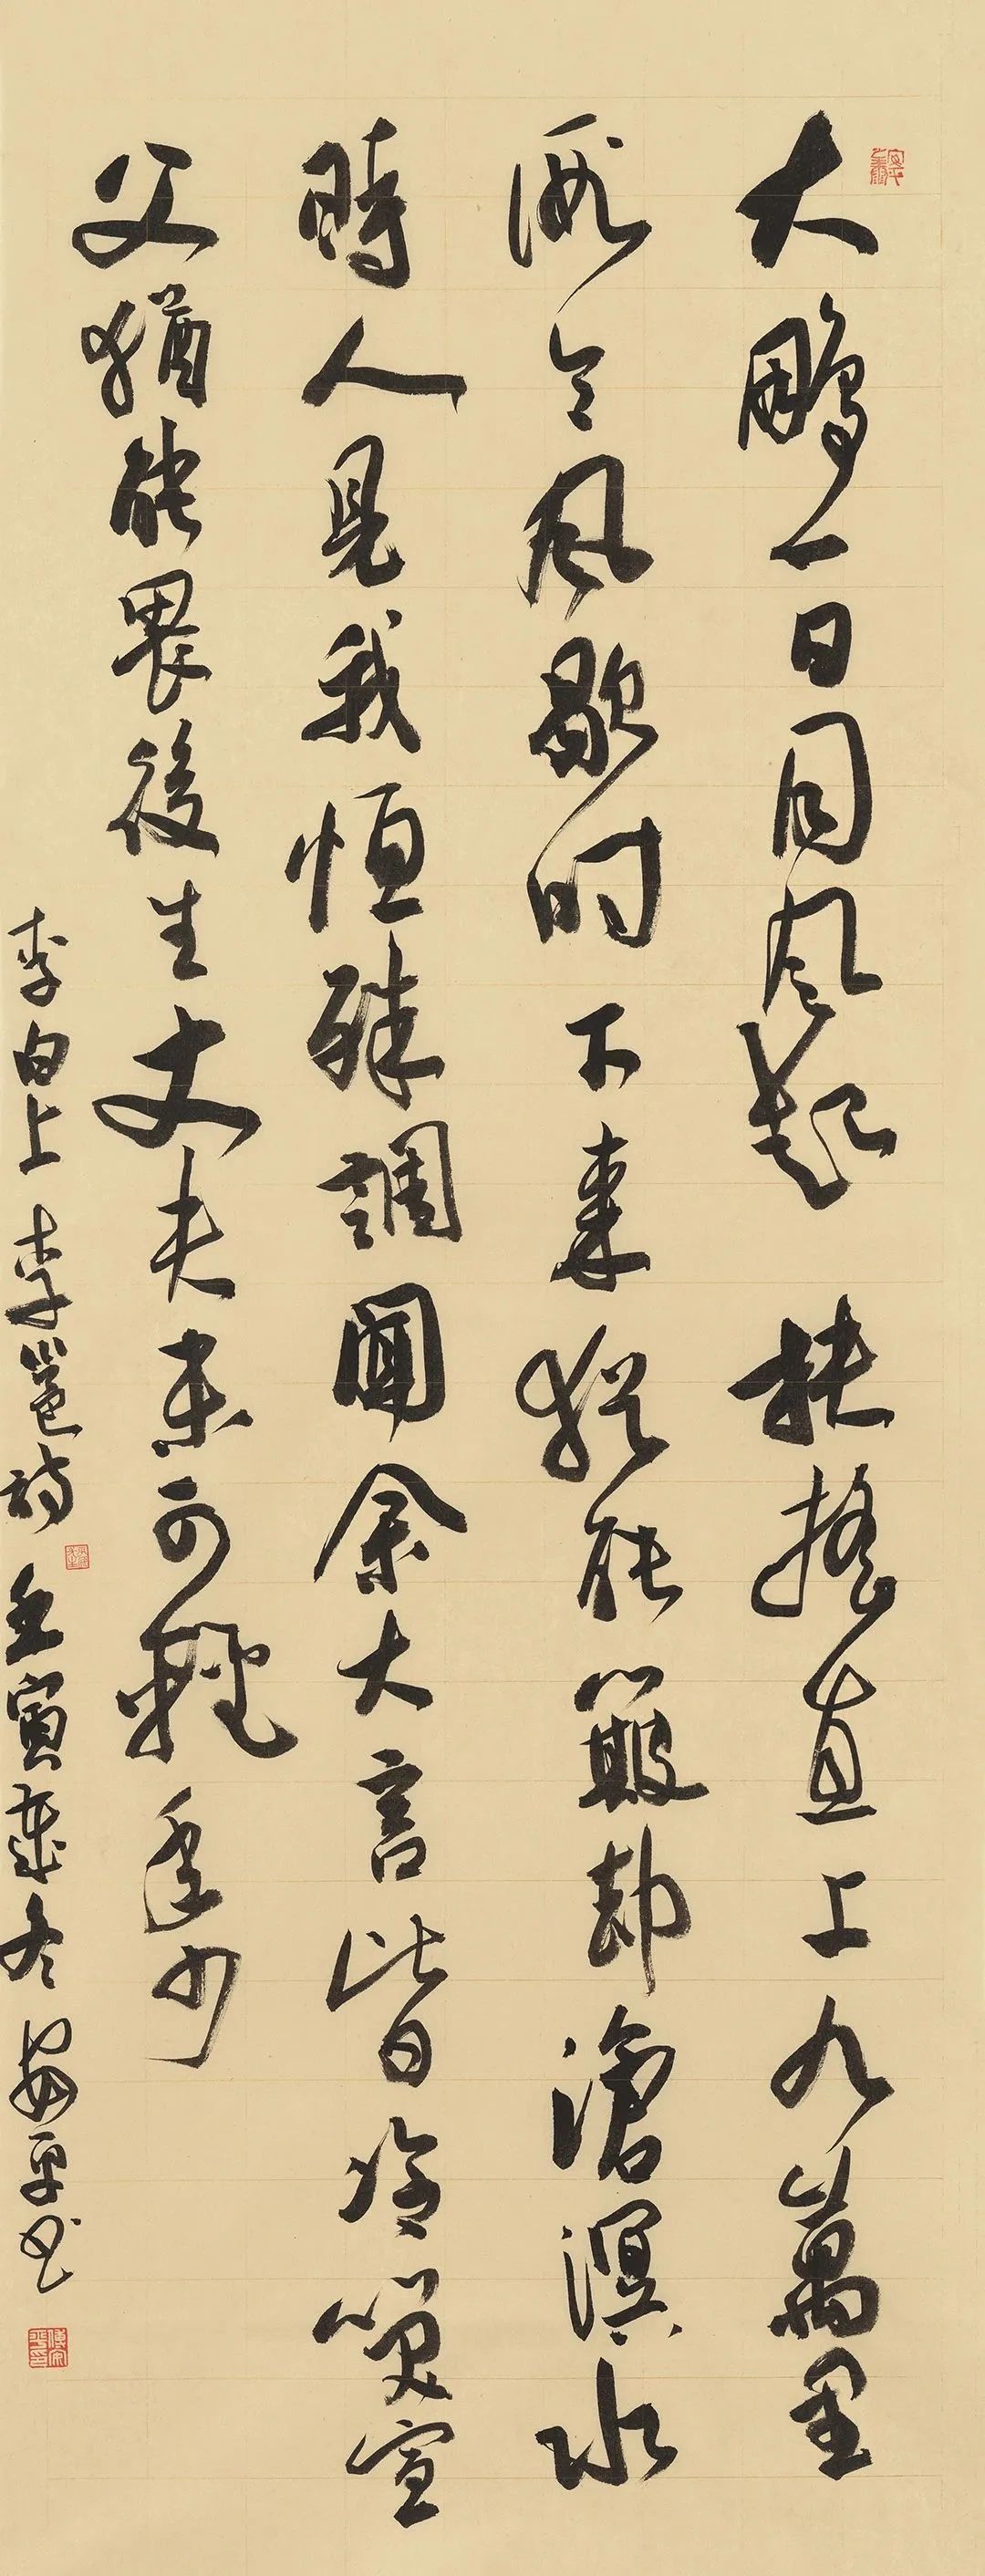 大鵬一日同风起扶摇直上九萬里
假令風歇时不来犹能簸却滄溟水
時人見我恒殊調聞余大言皆冷笑宣
父猶能畏後生丈夫未可輕年少
李白上李邕詩壬寅歲冬安平书